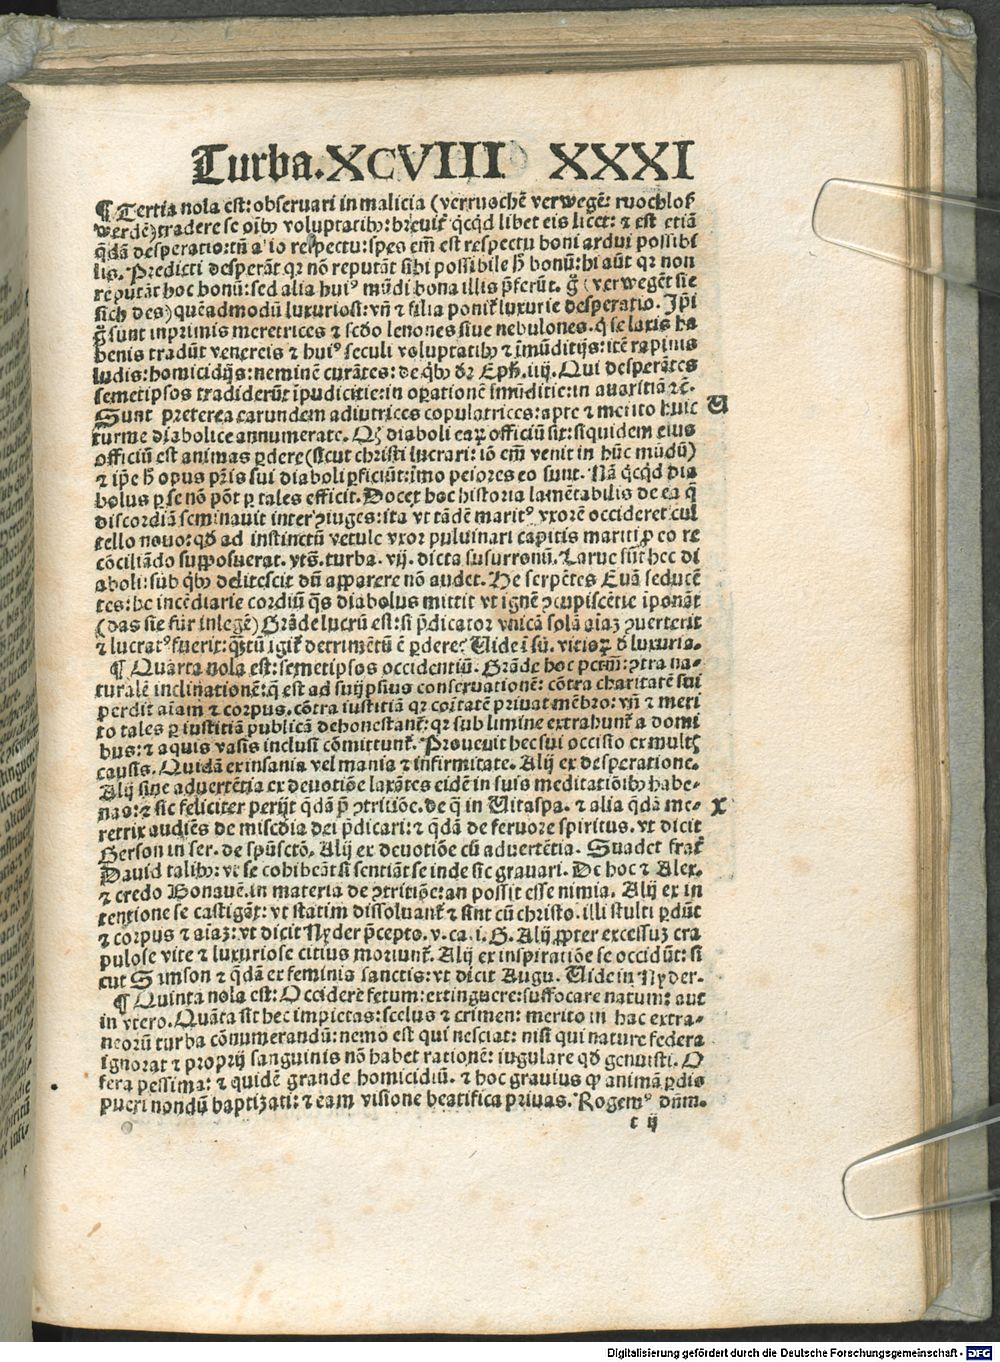 Turba. XCVIII XXXI
¶ Tertia nola est: obseruari in malicia (verruochẽ verwegẽ: ruochlos
werdẽ) tradere se oĩbꝰ voluptatibꝰ: breuiť qcqd libet eis licet: ⁊ est etiã
qdã desperatio: tñ a'io respectu: spes em̃ est respectu boni ardui possibi
lis. Predicti desperãt qꝛ nõ reputãt sibi possibile h̃ bonũ: hi aũt qꝛ non
reputãt hoc bonũ: sed alia huiꝰ mũdi bona illis p̃ferũt. g̃ (verwegẽt sie
sich des) quẽadmodũ luxuriosi: vñ ⁊ filia poniť luxurie desperatio. Ip̃i
g̃ sunt inprimis meretrices ⁊ scd̃o lenones siue nebulones. q̃ se laxis ha
benis tradũt venereis ⁊ huiꝰ seculi voluptatibꝰ ⁊ ĩmũditijs: itẽ rapinis
ludis: homicidijs: neminẽ curãtes: de qbꝰ dꝛ Eph̃. iiij. Qui desperãtes
semetipsos tradiderũt ĩpudicitie: in oꝑationẽ ĩmũditie: in auaritiã ⁊c̃.
Sunt preterea earundem adiutrices copulatrices: apte ⁊ merito huic U
turme diabolice annumerate. Qꝫ diaboli eaꝝ officiũ sit: siquidem eius
officiũ est animas ꝑdere (sicut christi lucrari: iõ em̃ venit in hũc mũdũ)
⁊ ip̃e h̃ opus p̃ris sui diaboli ꝑficiũt: ĩmo peiores eo sunt. Nã qcqd dia
bolus ꝑ se nõ põt ꝑ tales efficit. Docet hoc historia lamẽtabilis de ea q̃
discordiã seminauit inter ꝯiuges: ita vt tãdẽ maritꝰ vxorẽ occideret cul
tello nouo: qd̃ ad instinctũ vetule vxor puluinari capitis mariti ꝓ eo re
cõciliãdo supposuerat. vts̃. turba. vij. dicta susurronũ. Larue sũt hec di
aboli: sub qbꝰ delitescit dũ apparere nõ audet. He serpẽtes Euã seducẽ
tes: he incẽdiarie cordiũ q̃s diabolus mittit vt ignẽ ꝯcupiscẽtie ĩponãt
(das sie für inlegẽ) Grãde lucrũ est: si p̃dicator vnicã solã aĩaꝫ ꝯuerterit
⁊ lucratꝰ fuerit: q̃tũ igiť detrimẽtũ ẽ ꝑdere? Uide ĩ sũ. vitioꝝ d̃ luxuria.
¶ Quarta nola est: semetipsos occidentiũ. Grãde hoc pctm̃: ꝯtra na⸗
turalẽ inclinationẽ: q̃ est ad suijpsius conseruationẽ: cõtra charitatẽ sui
perdit aĩam ⁊ corpus. cõtra iustitiã qꝛ cõitatẽ priuat mẽbro: vñ ⁊ meri
to tales ꝑ iustitiã publicã dehonestanť: qꝛ sub limine extrahunť a domi
bus: ⁊ aquis vasis inclusi cõmittunť. Proueuit hec sui occisio ex multꝭ
causis. Quidã ex insania vel mania ⁊ infirmitate. Alij ex desperatione.
Alij sine aduertẽtia ex deuotiõe laxãtes eidẽ in suis meditatiõibꝰ habe⸗
nas: ⁊ sic feliciter perijt qdã p̃ ꝯtritiõe. de q̃ in Uitaspa. ⁊ alia qdã me⸗ X
retrix audiẽs de misc̃dia dei p̃dicari: ⁊ qdã de feruore spiritus. vt dicit
Gerson in ser. de spũsctõ. Alij ex deuotiõe cũ aduertẽtia. Suadet frať
Dauid talibꝰ: vt se cohibeãt si sentiãt se inde sic grauari. De hoc ⁊ Alex.
⁊ credo Bonauẽ. in materia de ꝯtritiõe: an possit esse nimia. Alij ex in
tentione se castigãt: vt statim dissoluanť ⁊ sint cũ christo. illi stulti ꝑdũt
⁊ corpus ⁊ aĩaꝫ: vt dicit Nyder p̃cepto. v. ca. i. G. Alij ꝓpter excessuꝫ cra
pulose vite ⁊ luxuriose citius moriunť. Alij ex inspiratiõe se occidũt: si
cut Simson ⁊ qdã ex feminis sanctis: vt dicit Augu. Uide in Nyder.
¶ Quinta nola est: Occidere fetum: extinguere: suffocare natum: aut
in vtero. Quãta sit hec impietas: scelus ⁊ crimen: merito in hac extra⸗
neorũ turba cõnumerandũ: nemo est qui nesciat: nisi qui nature federa
ignorat ⁊ proprij sanguinis nõ habet rationẽ: iugulare qd̃ genuisti. O
fera pessima: ⁊ quidẽ grande homicidiũ. ⁊ hoc grauius qꝫ animã ꝑdis
pueri nondũ baptizati: ⁊ eam visione beatifica priuas. Rogemꝰ dñm.
c ij
Digitalisierung gefördert durch die Deutsche Forschungsgemeinschaft - DFG